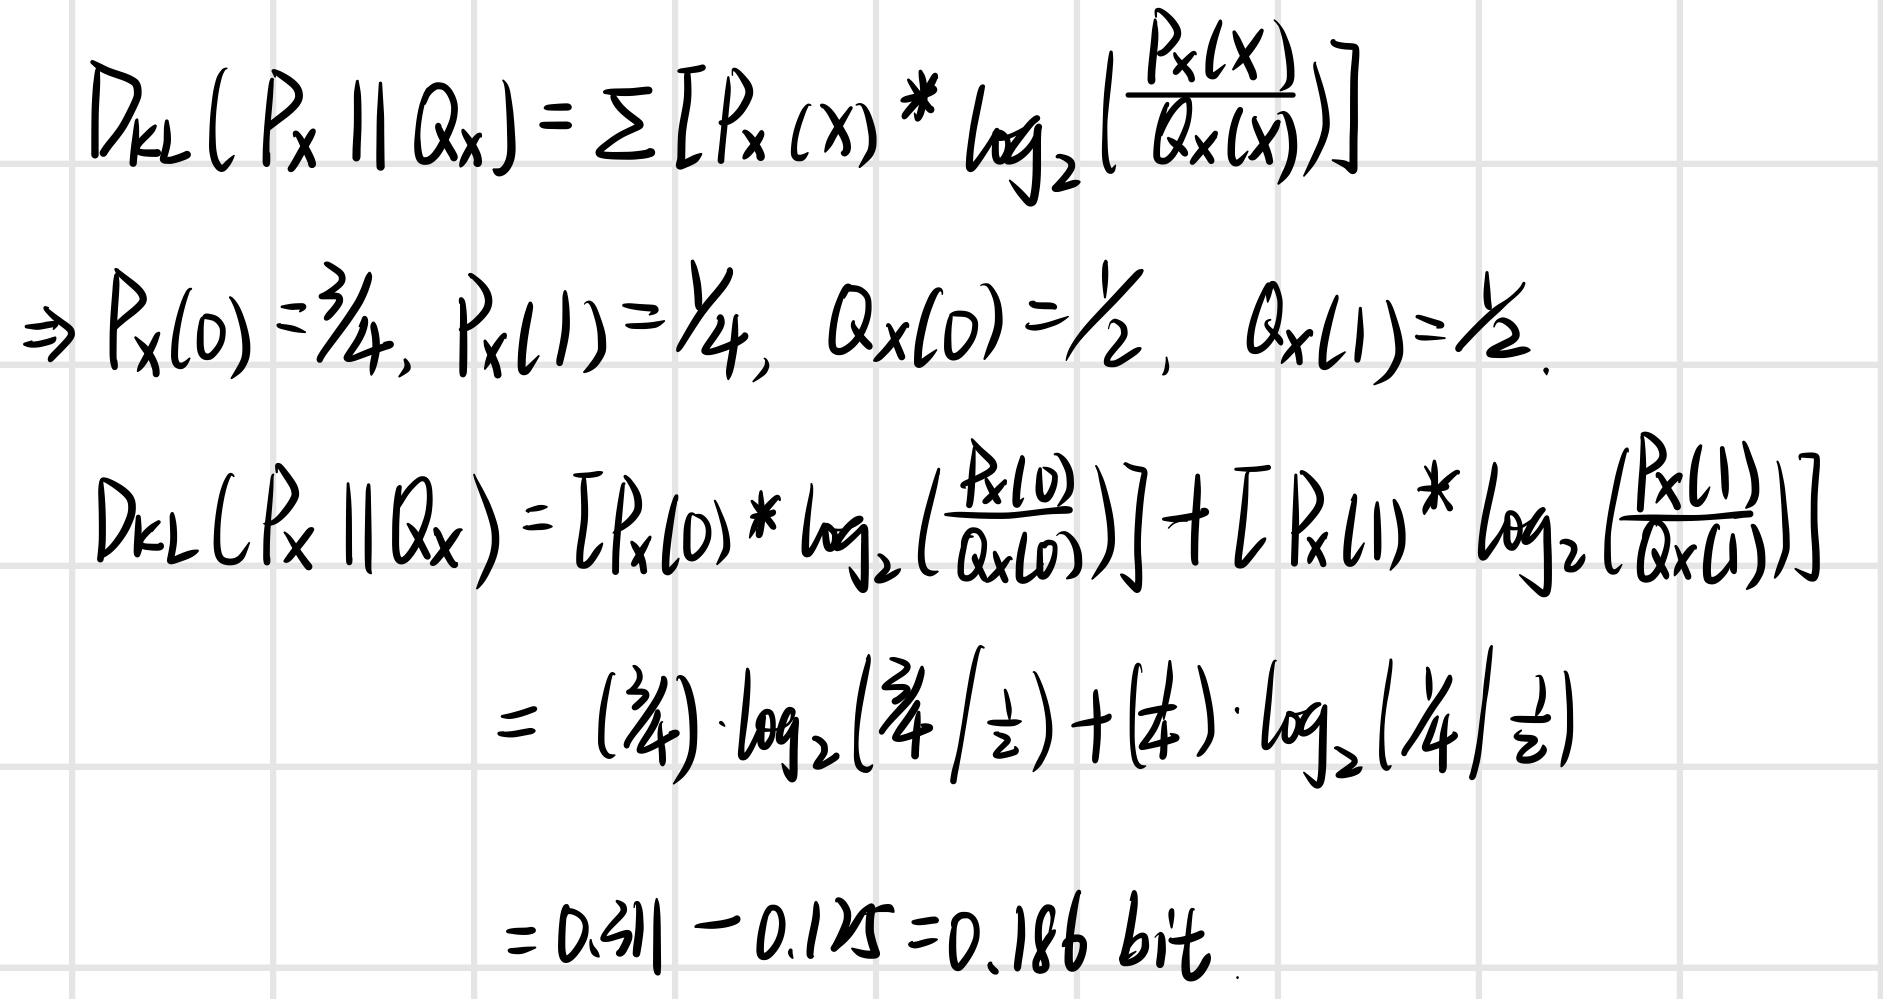 D_KL(P_X || Q_X) = Σ[P_X(X) * log_2(P_X(X)/Q_X(X))]
⇒ P_X(0) = 3/4, P_X(1) = 1/4, Q_X(0) = 1/2, Q_X(1) = 1/2.
D_KL(P_X || Q_X) = [P_X(0) * log_2(P_X(0)/Q_X(0))] + [P_X(1) * log_2(P_X(1)/Q_X(1))]
= (3/4) · log_2(3/4 / 1/2) + (1/4) · log_2(1/4 / 1/2)
= 0.311 - 0.125 = 0.186 bit.